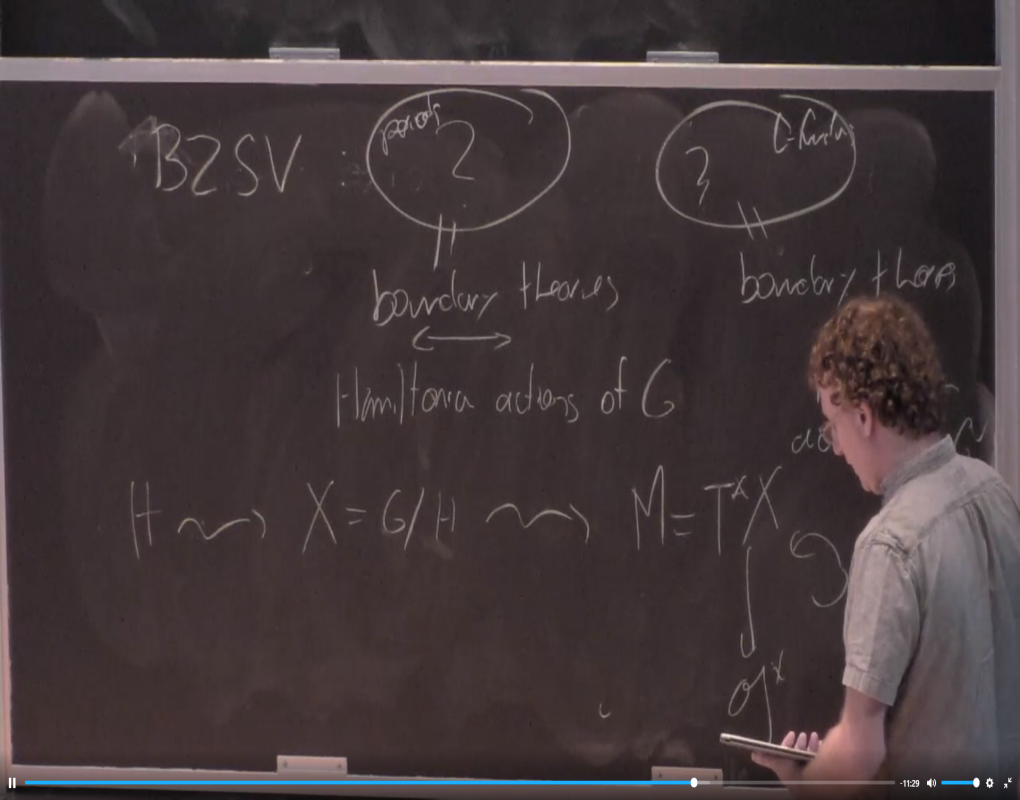 BZSV : periods ? L-funct. ?
|| ||
boundary theories boundary theories
↔
Hamiltonian actions of G
H ⇝ X = G/H ⇝ M = T*X
↓
𝔤*
-11:29